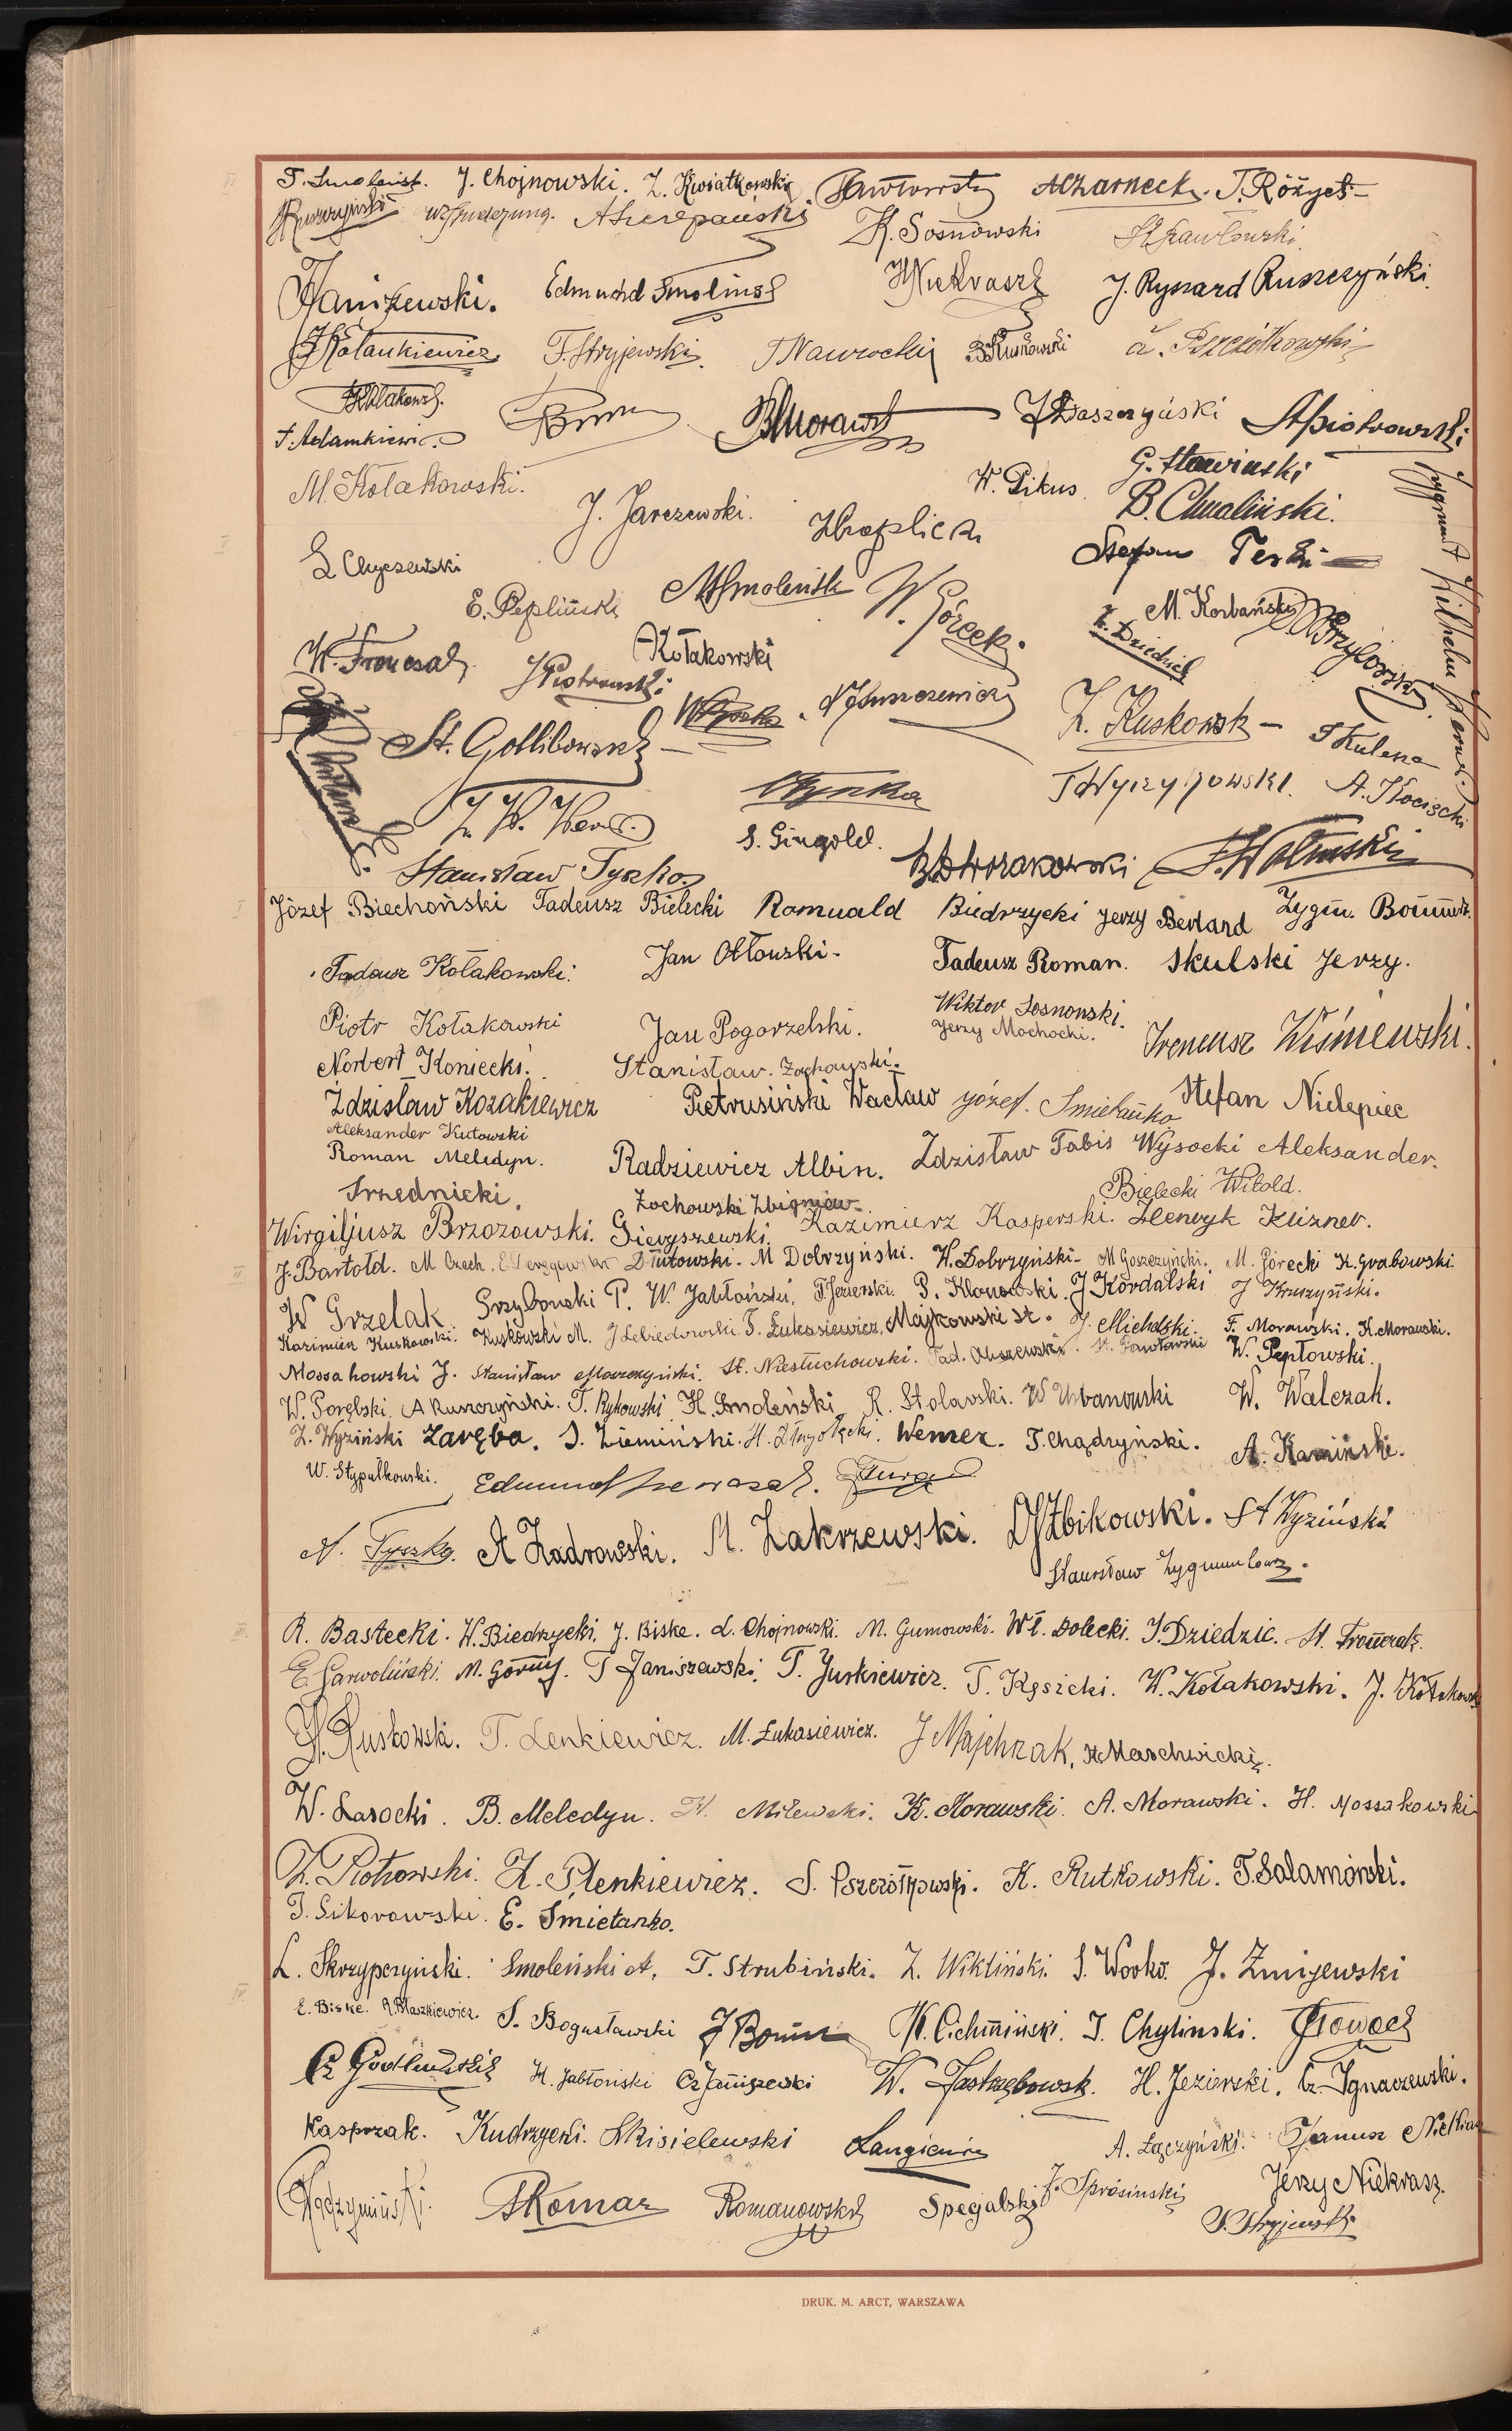 J. Chojnowski. Z. Kwiatkowski Pawłowski A Czarnecki. T. Różycki
A Szczepański K. Sosnowski St Pawłowski
Janiszewski. Edmund Smoliński H Niekrasz J. Ryszard Ruszczyński.
Z Kołankiewicz F. Stryjewski. T Nawrocki B Kuskowski L. Pszczółkowski
T. Adamkiewicz B Morawski J Daszczyński A Piotrowski
M. Kołakowski. W. Pikus. G. Sławiński
J. Jarczewski. B. Chmaliński.
L Chyczewski Stefan Terki
E. Pepliński M Smoleński W. Górecki. M. Korbański
Z. Dziedzic Przybowski
W. Froncsak J Piotrowski. A Kołakowski
Zygmunt Wilhelm Werner.
St. Gotlibowski Z. Kuskowski T Kulesza
Z. W. Werner. Tyszka T Wyrzykowski. A. Kocięcki
S. Gingold.
Stanisław Tyszko. B Dworakowski J. Woliński
Józef Biechoński Tadeusz Bielecki Romuald Biedrzycki Jerzy Berland Zygm.
Tadeusz Kołakowski. Jan Ottowski. Tadeusz Roman. Skulski Jerzy.
Piotr Kołakowski Jan Pogorzelski. Wiktor Sosnowski. Ireneusz Wiśniewski.
Jerzy Mochocki.
Norbert Koniecki. Stanisław Żochowski.
Zdzisław Kozakiewicz Pietrusiński Wacław Józef. Śmietanko Stefan Nielepiec
Aleksander Kutowski
Roman Meledyn. Radziewicz Albin. Zdzisław Tabis Wysocki Aleksander.
Srzednicki. Żochowski Zbigniew. Bielecki Witold.
Wirgiljusz Brzozowski. Gieryszewski. Kazimierz Kasperski. Henryk Klizner.
J. Bartołd. M Czech. Dłutowski. M Dobrzyński. W. Dobrzyński. M Goszczyński. M. Górecki K. Grabowski.
W Grzelak Grzybowski P. W. Jabłoński, F. Jezierski. P. Klonowski. J Kordalski J Kruszyński.
Kazimierz Kuskowski. Kuskowski M. J Lebiedowski. T. Łukasiewicz, Majkowski St. J. Michalski. F. Morawski. K. Morawski.
Mossakowski J. Stanisław Moszczyński. St. Niestuchowski. Tad. Olszewski. St. Pawłowski W. Peptowski.
W. Porębski. A Ruszczyński. T. Rykowski H. Smoleński R. Stolarski. W Urbanowski W. Walczak.
Z. Wyziński Zaręba. S. Ziemiński. H. Złngołęcki. Wemer. T. Chądzyński. A. Kamiński.
W. Stypułkowski. Edmund
A. Tyszko. A Zadrowski. M. Zakrzewski. Żbikowski. St Wyziński
Stanisław Zygmuntowicz.
R. Bastecki. W. Biedrzycki. J. Biske. L. Chojnowski. M. Gumowski. Wł. Dolecki. J. Dziedzic. St. Fronczak.
E. Garwoliński. M. Górny. T Janiszewski. T. Jurkiewicz. T. Kęsicki. W. Kołakowski. J. Kołakowski
H. Ruskowski. T. Lenkiewicz. M. Łukasiewicz. J Majchrzak, St. Maschwicki.
W. Lasocki. B. Meledyn. W. Milewski. K. Morawski. A. Morawski. H. Mossakowski
Z. Piotrowski. H. Plenkiewicz. S. Pszczółkowski. K. Rutkowski. T. Salamoński.
T. Sikorowski. E. Śmietanko.
L. Skrzypczyński. Smoleński A. T. Strubiński. Z. Wikliński. S.Worko. J. Żmijewski
E. Biske. A. Błaszkiewicz. S. Bogusławski J Bomm W. Cichmiński. J. Chyliński. Głowacki
Cz Godlewski H. Jabłoński Cz Janiszewski W. Jastrzębowski. H. Jezierski. Cz. Ignaczewski.
Kasprzak. Kudrzycki. S Kisielewski Langiewicz A. Łączyński. Janusz Niekrasz
Radzymiński. S Komar Romanowski Specjalski J. Sprósiński Jerzy Niekrasz.
S. Stryjewski.
DRUK. M. ARCT, WARSZAWA